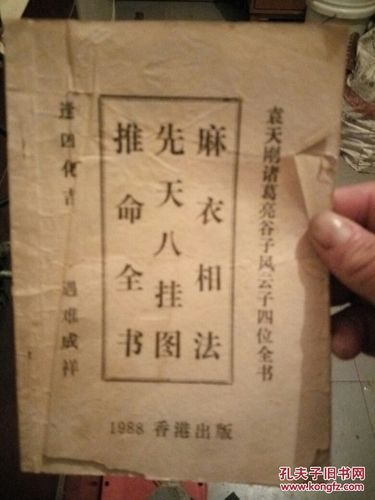 袁天刚诸葛亮谷子风云子四位全书
麻衣相法
先天八挂图
推命全书
逢凶化吉 遇难成祥
1988 香港出版
孔夫子旧书网
www.kongfz.com